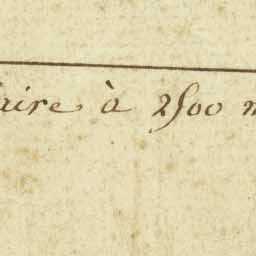 aire à 2500 m